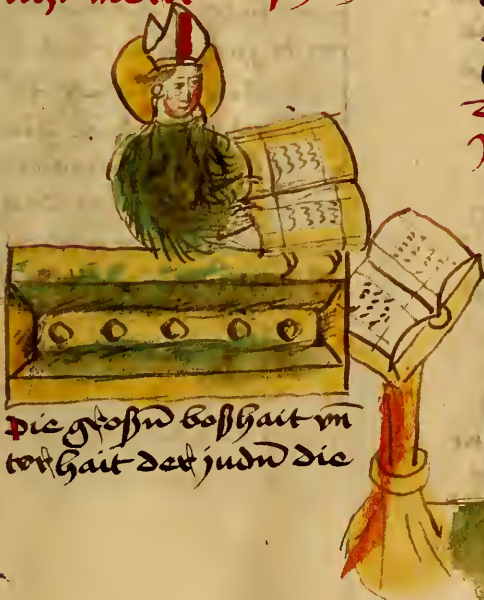 Die großn̄ boßhait vn̄
torhait der judn̄ die